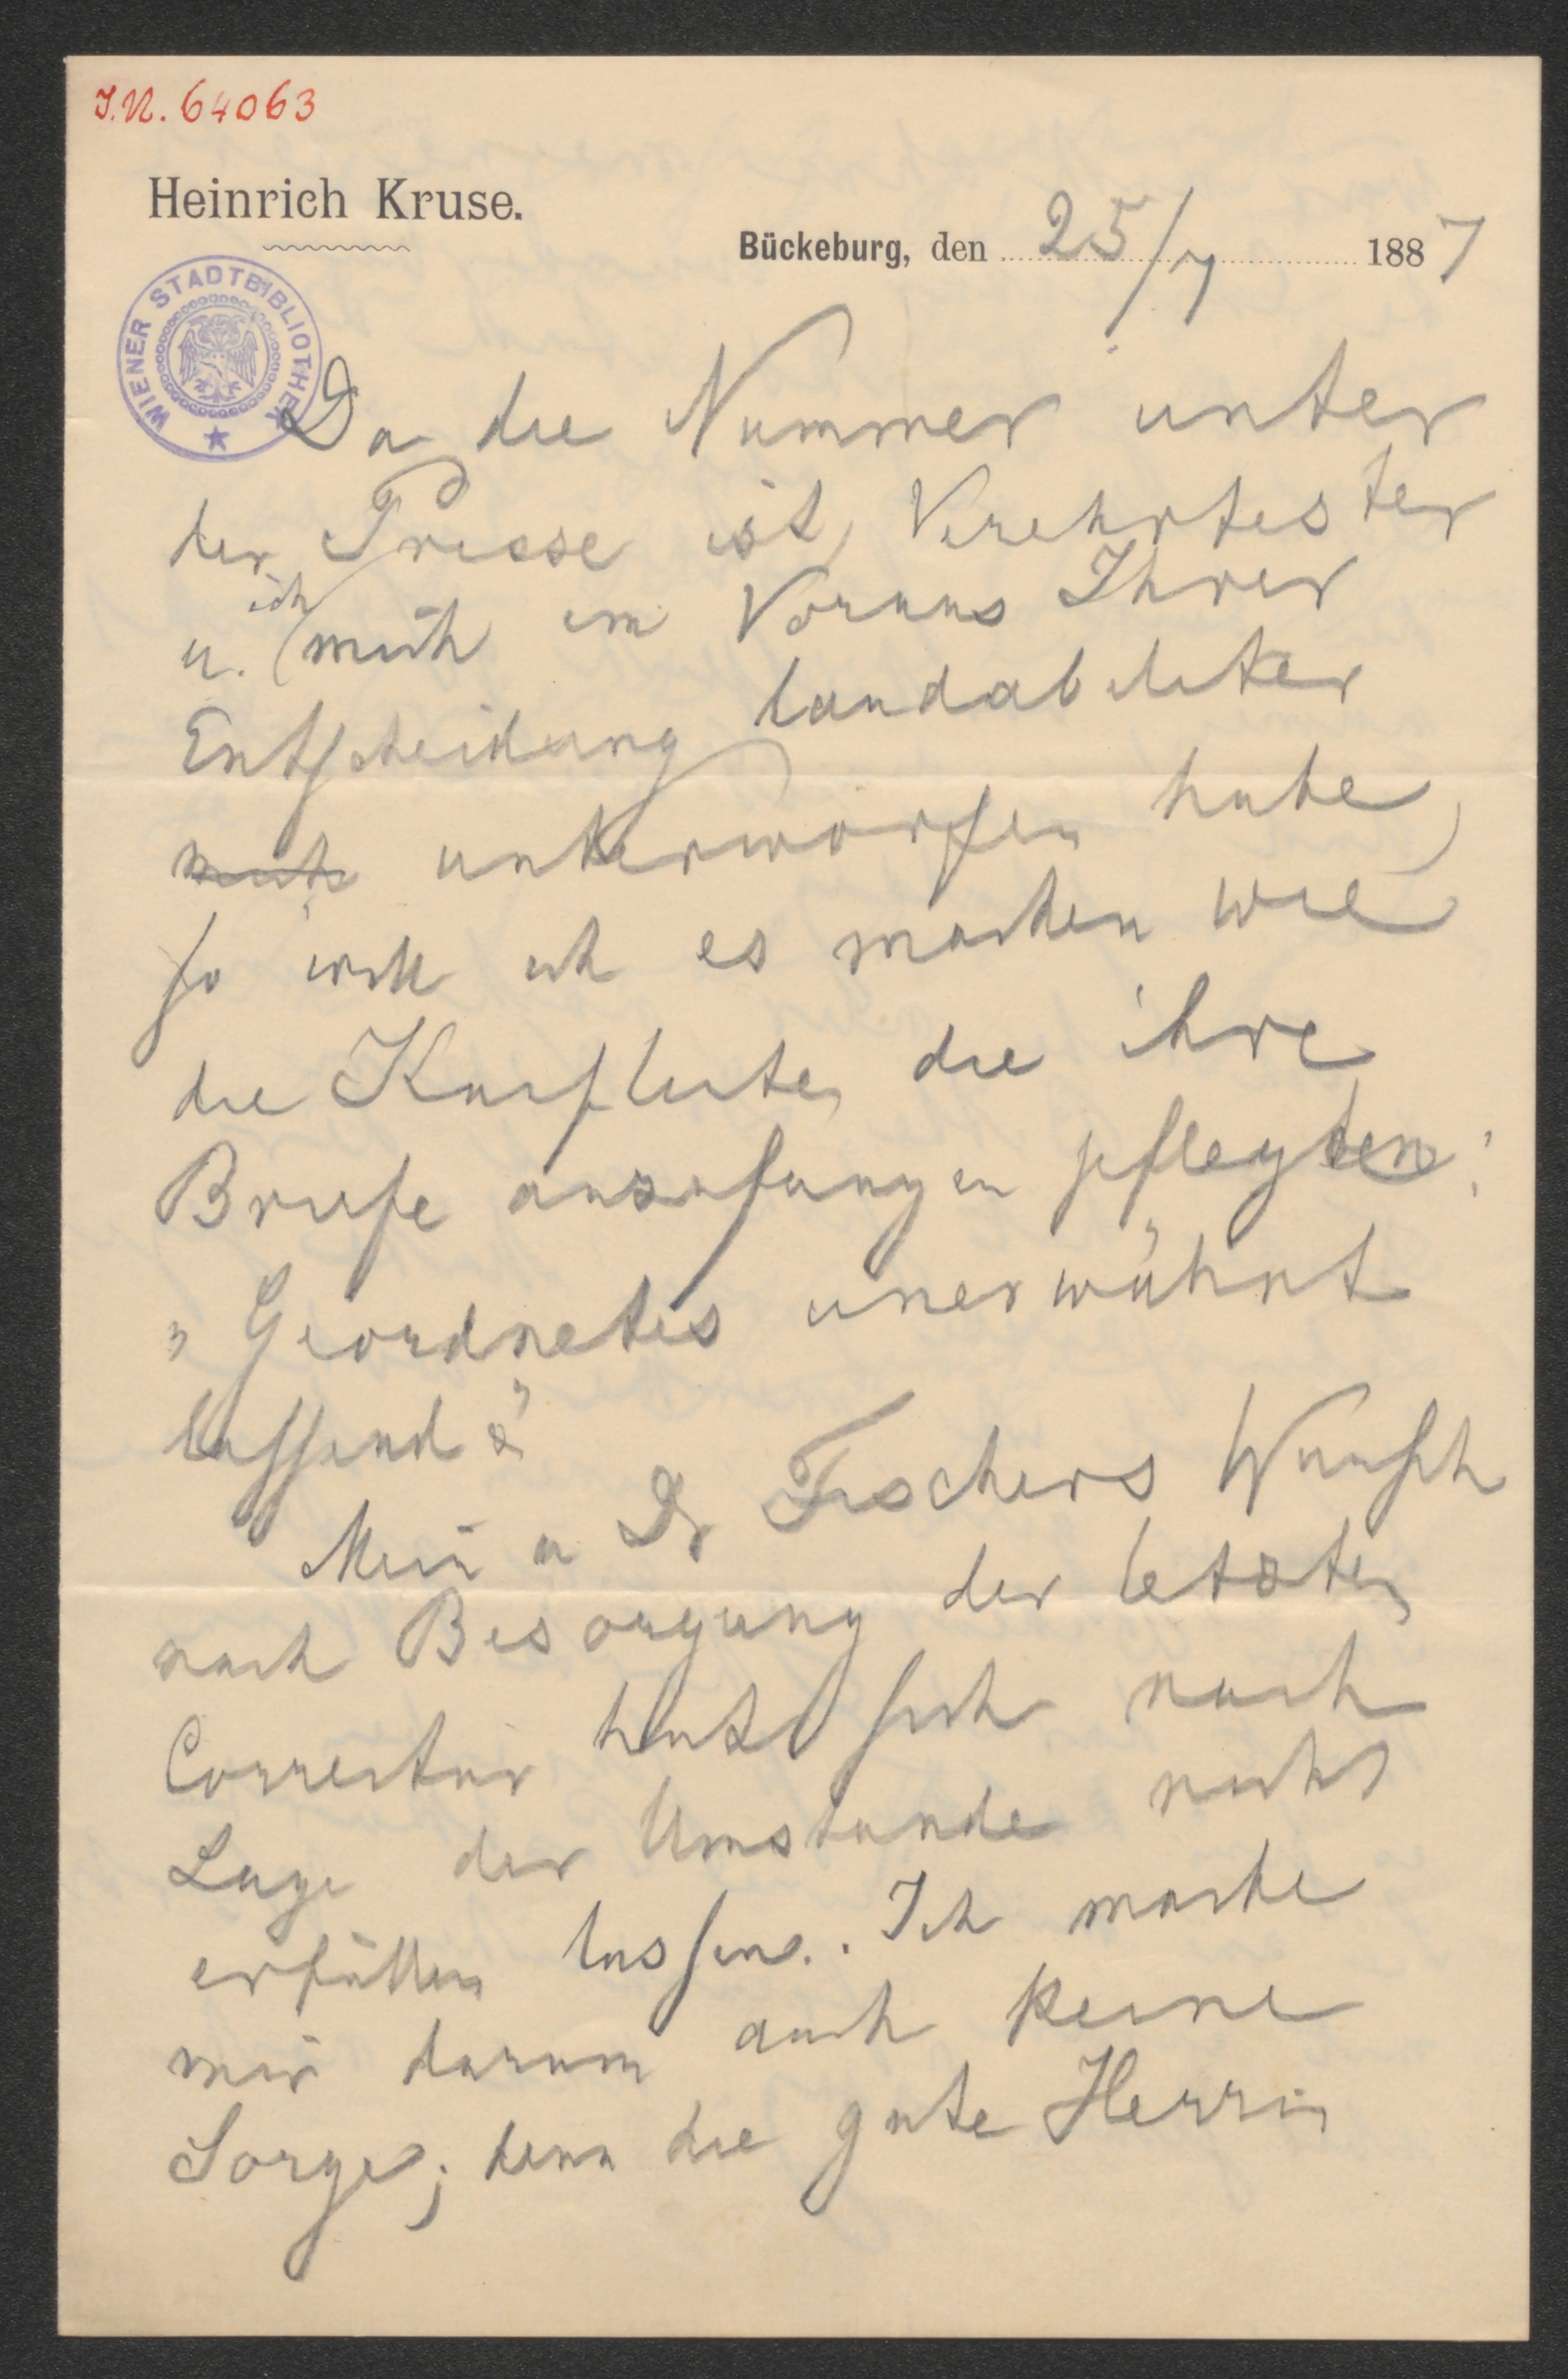 J.N. 64063
Heinrich Kruse.
Bückeburg, den 25/7 1887
WIENER STADTBIBLIOTHEK
Da die Nummer unter
der Presse ist, Verehrtester
u. ich mich im Voraus Ihrer
Entscheidung
mich unterworfen habe,
so will ich es machen wie
die Kaufleute, die ihre
Briefe anzufangen pflegten:
„Geordnetes unerwähnt
lassend"
Mein u Dr Fischers Wunsch
nach Besorgung der letzten
Correctur hat sich nach
Lage der Umstände nicht
erfüllen lassen. Ich mache
mir darum auch keine
Sorge; denn die gute Herrin